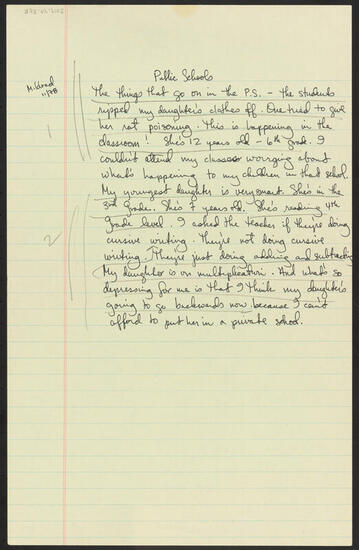 Public Schools
11/78
1
The things that go on in the P.S. - the students
ripped my daughter's clothes off. One tried to give
her rat poisoning. This is happening in the
classroom! She's 12 years old - 6th grade. I
couldn't attend my classes worrying about
what's happening to my children in that school.
My youngest daughter is very smart. She's in the
3rd grade. She's 7 years old. She's reading 4th
2
grade level. I asked the teacher if they're doing
cursive writing. They're not doing cursive
writing. They're just doing adding and subtracting
My daughter is on multiplication. And what's so
depressing for me is that I think my daughter's
going to go backwards now because I can't
afford to put her in a private school.